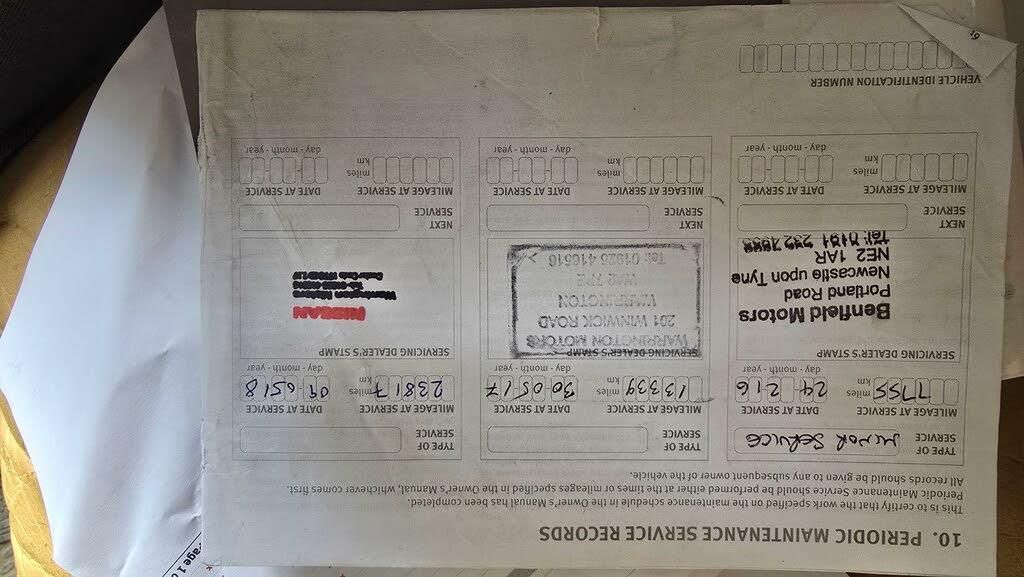 10. PERIODIC MAINTENANCE SERVICE RECORDS
This is to certify that the work specified on the maintenance schedule in the Owner's Manual has been completed.
Periodic Maintenance Service should be performed either at the times or mileages specified in the Owner's Manual, whichever comes first.
All records should be given to any subsequent owner of the vehicle.
TYPE OF SERVICE
MINOR SERVICE
MILEAGE AT SERVICE
DATE AT SERVICE
7755 miles
24 2 16
day - month - year
SERVICING DEALER'S STAMP
Benfield Motors
Portland Road
Newcastle upon Tyne
NE2 1AR
Tel: 0191
NEXT SERVICE
MILEAGE AT SERVICE
DATE AT SERVICE
miles
km
day - month - year
TYPE OF SERVICE
MILEAGE AT SERVICE
DATE AT SERVICE
13339 miles
30 05 17
day - month - year
SERVICING DEALER'S STAMP
WARRINGTON MOTORS
201 WINWICK ROAD
WARRINGTON
Tel: 01925 416516
NEXT SERVICE
MILEAGE AT SERVICE
DATE AT SERVICE
miles
km
day - month - year
TYPE OF SERVICE
MILEAGE AT SERVICE
DATE AT SERVICE
23817 miles
km
09
day - month - year
SERVICING DEALER'S STAMP
NISSAN
NEXT SERVICE
MILEAGE AT SERVICE
DATE AT SERVICE
miles
km
day - month - year
VEHICLE IDENTIFICATION NUMBER